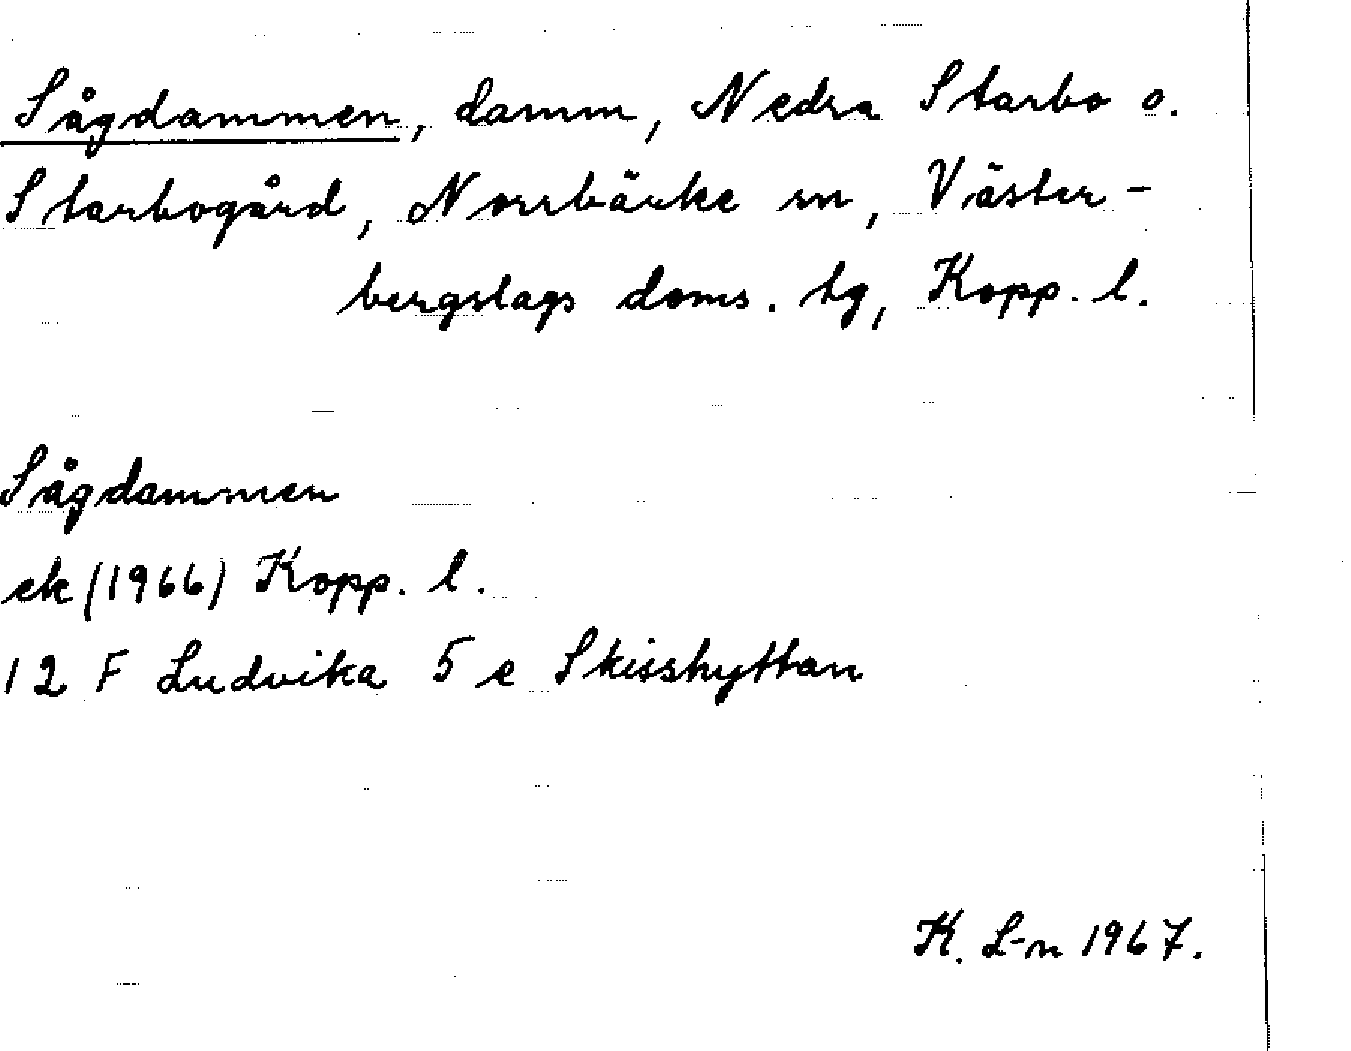 Sågdammen, damm, Nedra Starbo o.
Starbogård, Norrbärke sn, Väster-
bergslags doms. tg, Kopp. l.
Sågdammen
ek (1966) Kopp. l.
12 F Ludvika 5 e Skisshyttan
K. L-n 1967.